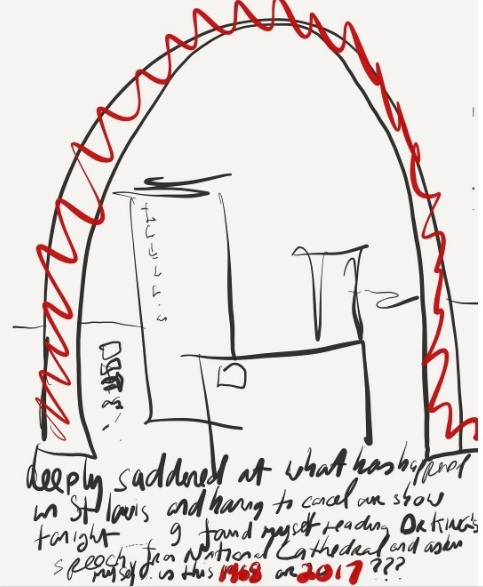 deeply saddened at what has happened
in St Louis and having to cancel our show
tonight I found myself reading Dr Kings
speech from National Cathedral and askin
myself is this 1968 or 2017 ???